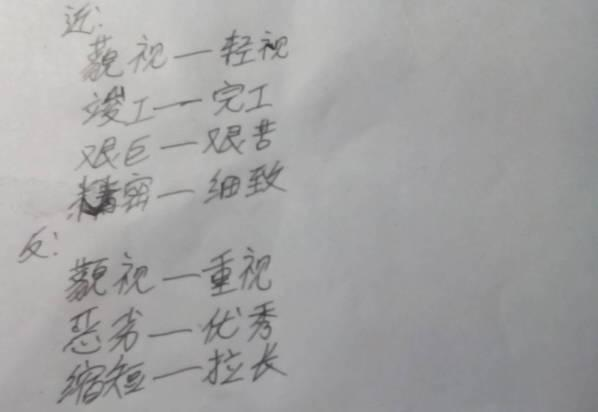 近:
藐视—轻视
竣工—完工
艰巨—艰苦
精密—细致
反:
藐视—重视
恶劣—优秀
缩短—拉长